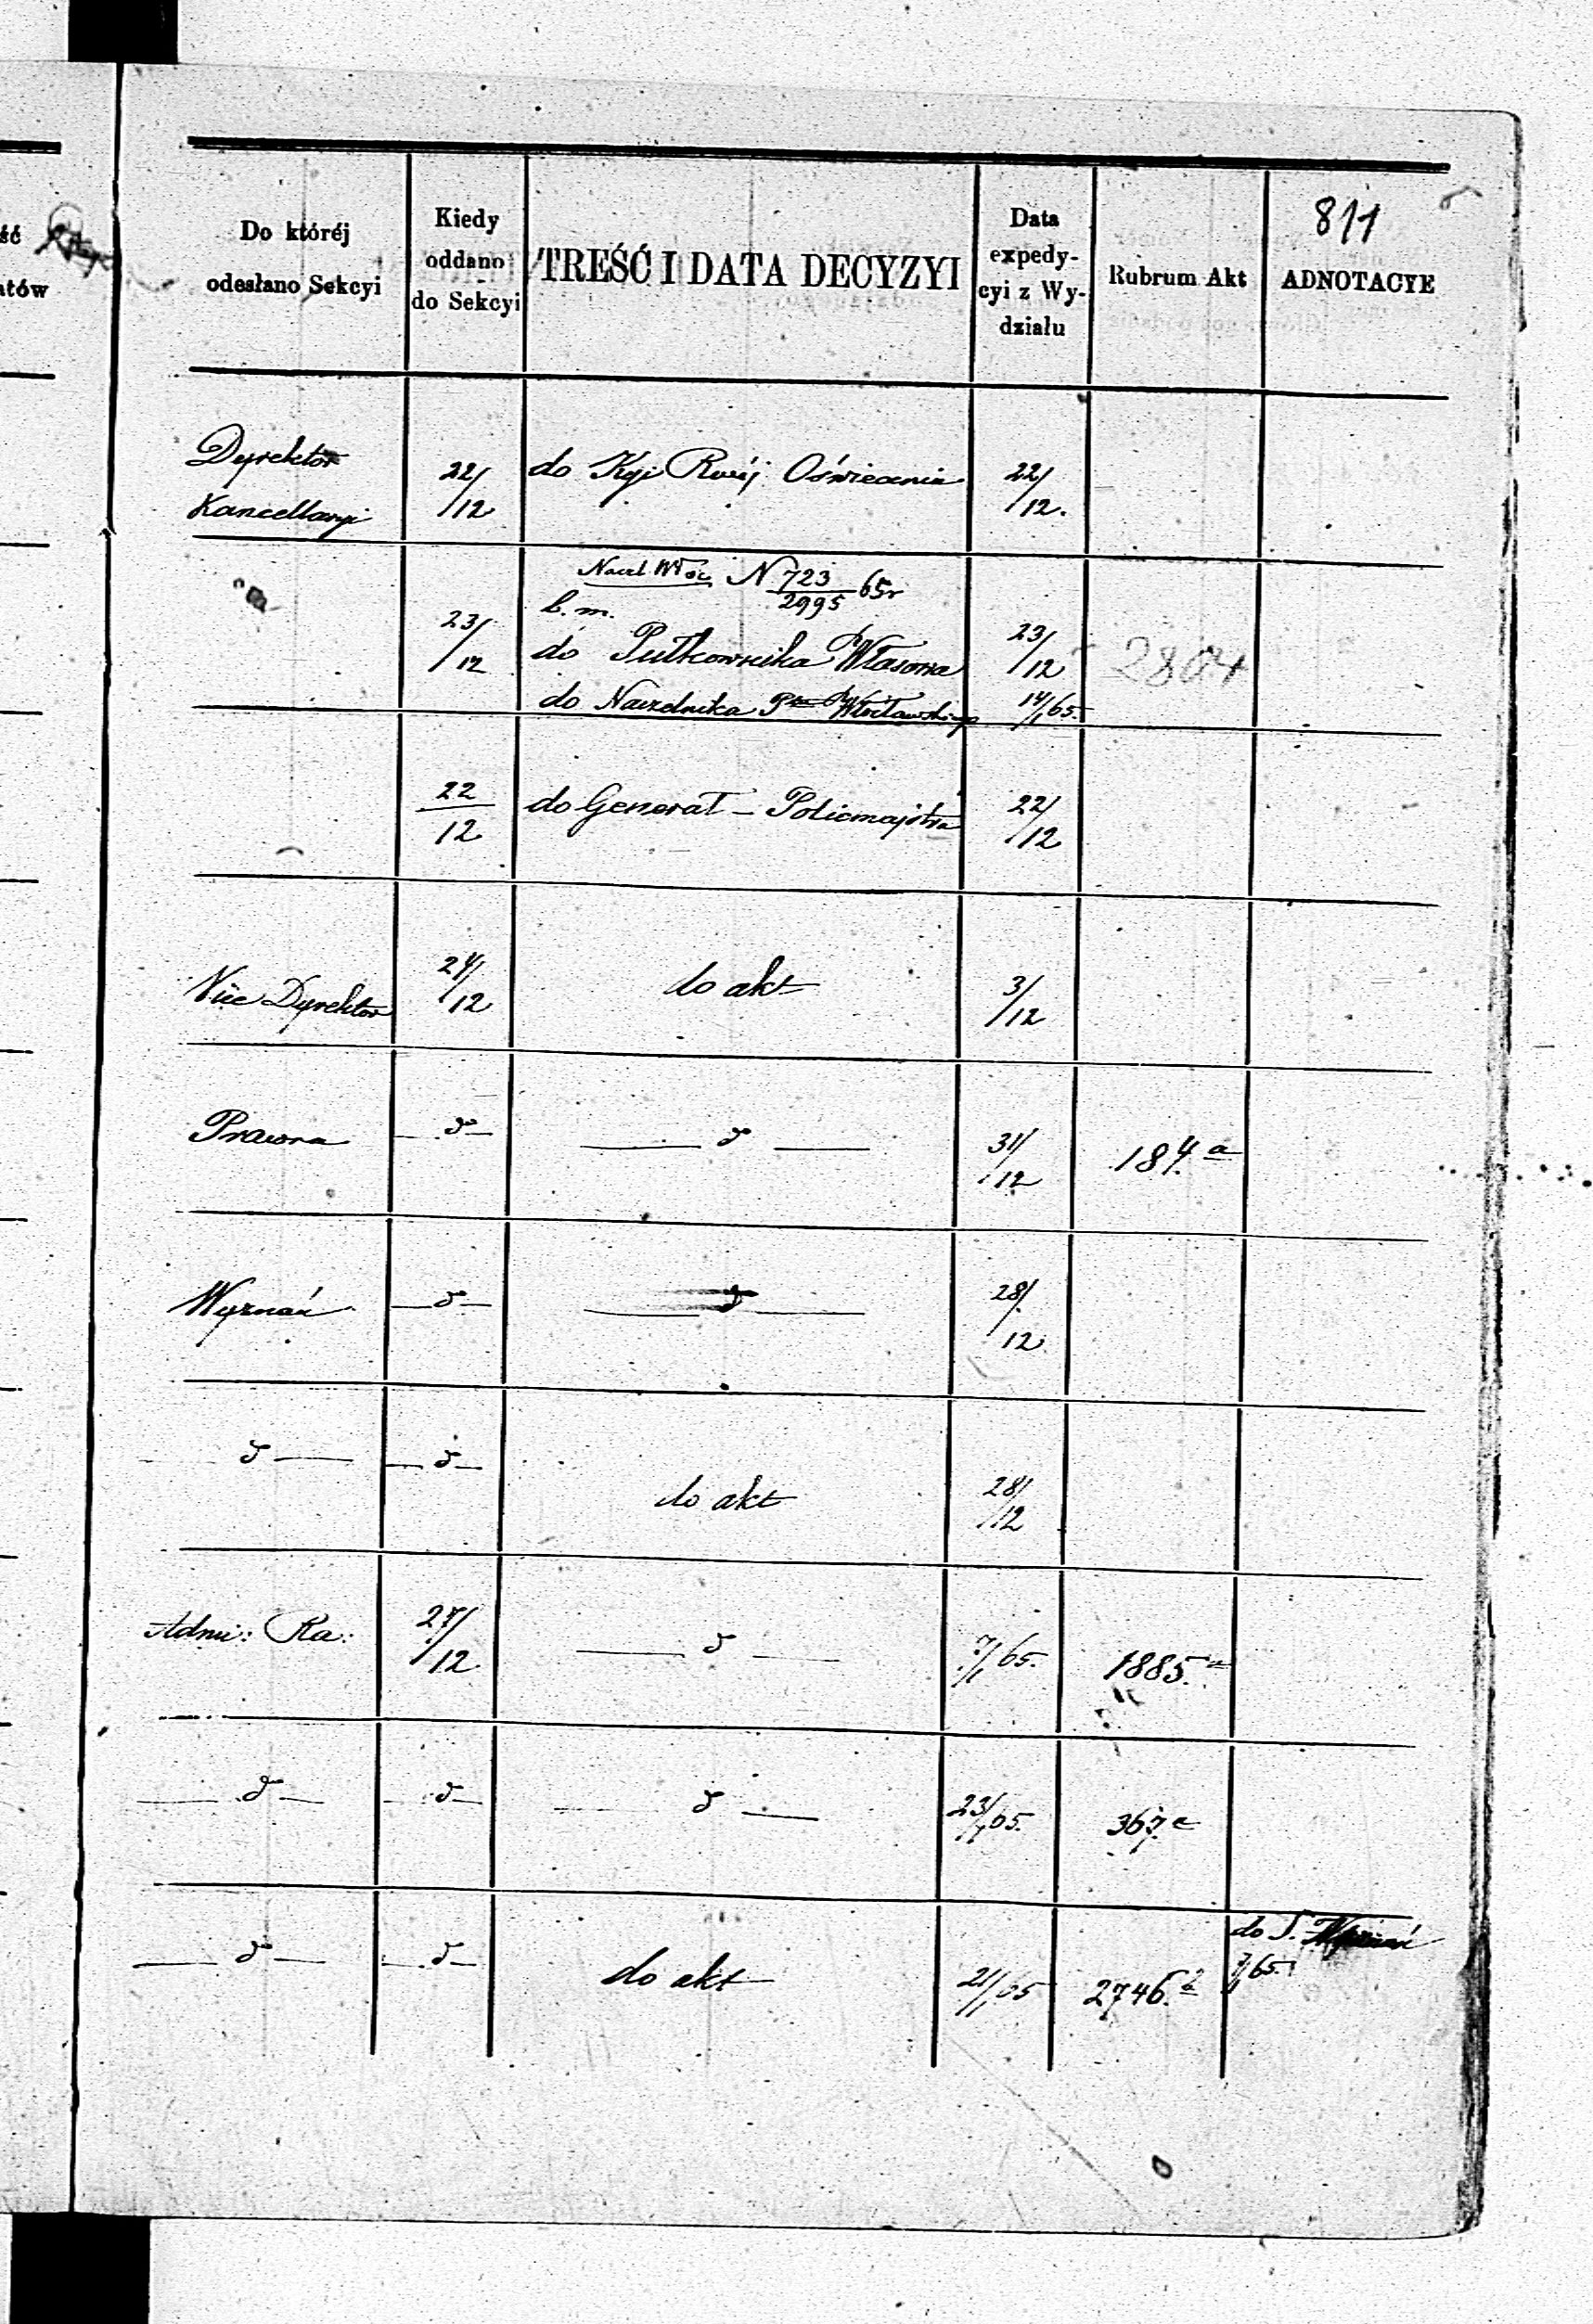 811
ść
atów
Do któréj
odesłano Sekcyi
Kiedy
oddano
do Sekcyi
TREŚĆ I DATA DECYZYI
Data
expedy-
cyi z Wy-
działu
Rubrum Akt
ADNOTACYE
Dyrektor
Kancellaryi
22/12
do Kgi Rwéj Oświecenia
22/12.
Nacz. Włoc. N 723/2995 65r
b. m.
23/12
do Pułkownika Własowa
23/12
do Naczelnika Ptu Włocławskiego
14/1 65.
22/12
do Generał - Policmajstra
22/12
Vice Dyrektor
24/12
do akt
3/12
Prawna
— d° —
— d° —
31/12
184. a
Wyznań
— d° —
— d° —
28/12
— d° —
— d° —
do akt
28/12
Admi: Ra:
27/12
— d° —
7/1 65.
1885. a
— d° —
— d° —
— d° —
23/1 65.
367. c
— d° —
— d° —
do akt
21/1 65
2746.
do S. Wyznań
7/1 65.